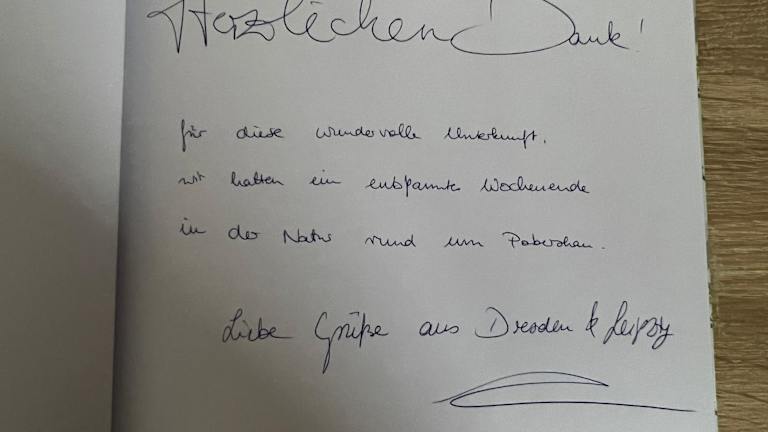 Herzlichen Dank!
für diese wundervolle Unterkunft.
wir hatten ein entspanntes Wochenende
in der Natur rund um Pobershau.
Liebe Grüße aus Dresden & Leipzig